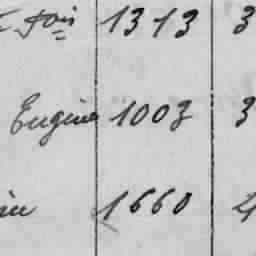 fois 1313 3
Eugène 1003 3
1660 4